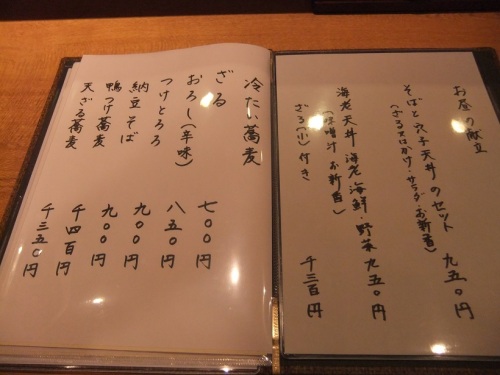 お昼の献立
そばと穴子天丼のセット 九五〇円
(ざる又はかけ・サラダ・お新香)
海老天丼 海老海鮮・野菜 九五〇円
(味噌汁 お新香)
ざる(小)付き 千三百円
冷たい蕎麦
ざる 七〇〇円
おろし(辛味) 八五〇円
つけとろろ 九〇〇円
納豆そば 九〇〇円
鴨つけ蕎麦 千四百円
天ざる蕎麦 千三五〇円